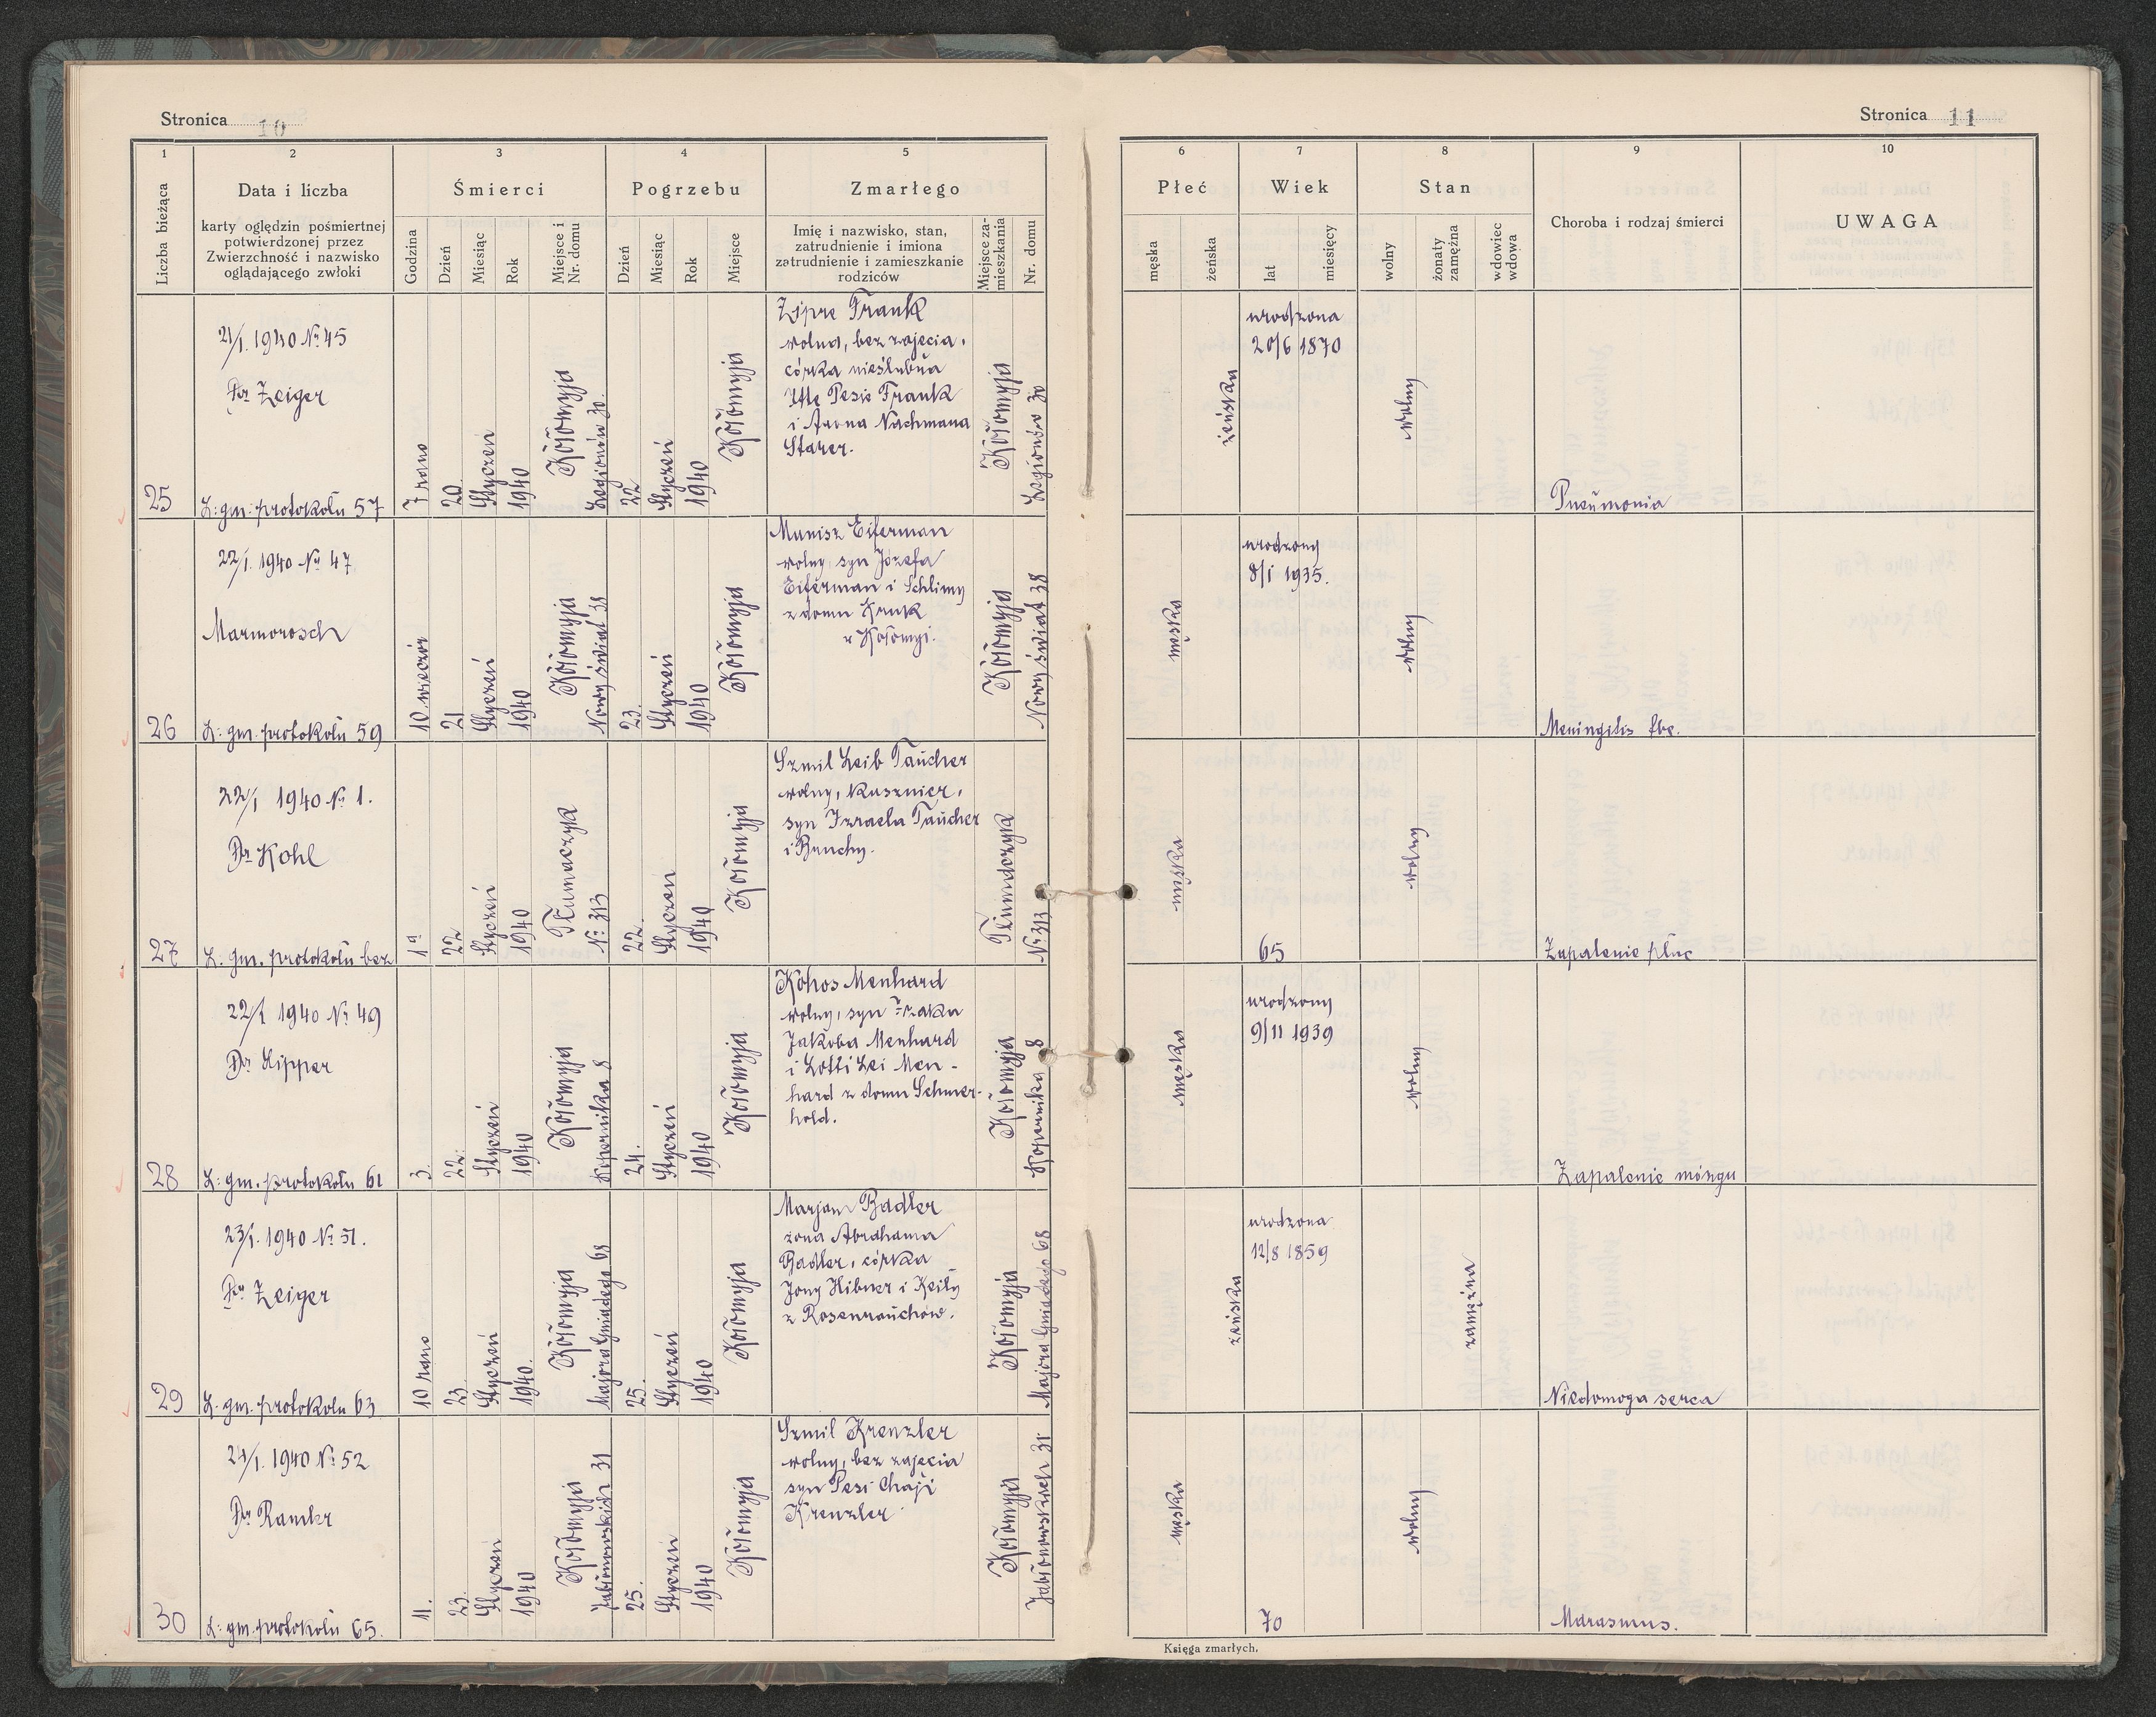 Stronica 10
1
2
3
4
5
Liczba bieżąca
Data i liczba
karty oględzin pośmiertnej
potwierdzonej przez
Zwierzchność i nazwisko
oglądającego zwłoki
Śmierci
Godzina
Dzień
Miesiąc
Rok
Miejsce i
Nr. domu
Pogrzebu
Dzień
Miesiąc
Rok
Miejsce
Zmarłego
Imię i nazwisko, stan,
zatrudnienie i imiona
zatrudnienie i zamieszkanie
rodziców
Miejsce za-
mieszkania
Nr. domu
25
21/I. 1940 № 45
Dr Zeiger
L: gm: protokołu 57
7 rano
20
Styczeń
1940
Kołomyja
Legionów 30.
22
Styczeń
1940
Kołomyja
Zipre Frank
wolna, bez zajęcia,
córka nieślubna
Itte Pesie Frank
i Arona Nachmana
Starer.
Kołomyja
Legionów 30
26
22/I. 1940 № 47
Marmorosch
L: gm. protokołu 59
10 wieczór
21
Styczeń
1940
Kołomyja
Nowy świat 38
23.
Styczeń
1940
Kołomyja
Munisz Eiferman
wolny, syn Józefa
Eiferman i Schlimy
z domu Kruk
w Kołomyi.
Kołomyja
Nowy świat 38
27
22/I 1940 № 1.
Dr Kohl
L. gm. protokołu bez
1
22
Styczeń
1940
Tłumaczyk
№ 313
22.
Styczeń
1940
Kołomyja
Szmil Leib Taucher
wolny, kuśnier,
syn Izraela Taucher
i Bruchy.
Tłumaczyk
№ 313
28
22/I 1940 № 49
Dr Lipper
L: gm. protokołu 61
3.
22.
Styczeń
1940
Kołomyja
Kopernika 8
24.
Styczeń
1940
Kołomyja
Kohos Menhard
wolny, syn Izaka
Jakoba Menhard
i Lotti Lei Men-
hard z domu Schmer-
hold.
Kołomyja
Kopernika 8
29
23/I. 1940 № 51.
Dr Zeiger
L. gm. protokołu 63
10 rano
23.
Styczeń
1940.
Kołomyja
Majora Gniadego 68
25.
Styczeń
1940
Kołomyja
Marjam Badler
żona Abrahama
Badler, córka
Jony Hibner i Keily
z Rosenrauchów.
Kołomyja
Majora Gniadego 68
30
24/I. 1940 № 52
Dr Ramler
L: gm. protokołu 65.
11.
23.
Styczeń
1940
Kołomyja
Jabłonowskich 31
25.
Styczeń
1940
Kołomyja
Szmil Krenzler
wolny, bez zajęcia
syn Pesi Chaji
Krenzler
Kołomyja
Jabłonowskich 31
Stronica 11
6
7
8
9
10
Płeć
męska
żeńska
Wiek
lat
miesięcy
Stan
wolny
żonaty
zamężna
wdowiec
wdowa
Choroba i rodzaj śmierci
UWAGA
żeńska
urodzona
20/6 1870
wolny
Pneumonia
męska
urodzony
8/I 1935.
wolny
Meningitis tbc.
męska
65
wolny
Zapalenie płuc
męska
urodzony
9/11 1939
wolny
Zapalenie mózgu
żeńska
urodzona
12/8 1859
zamężna
Niedomoga serca
męska
70
wolny
Marasmus.
Księga zmarłych.